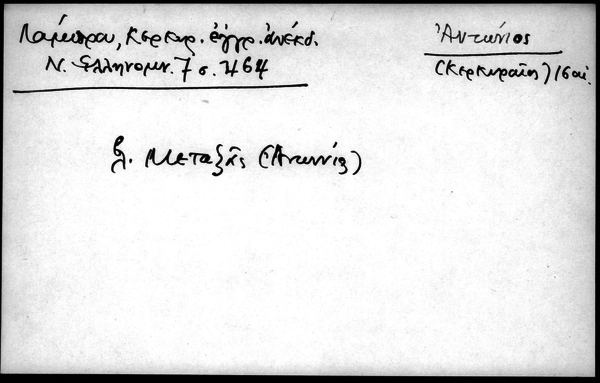 Λάμπρου, Κερκυρ. ἐγγρ. ἀνέκδ.
Ν. Ἑλληνομν. 7 σ. 464
Ἀντώνιος
(Κερκυραῖος) 16 αἰ.
βλ. Μεταξᾶς (Ἀντώνιος)